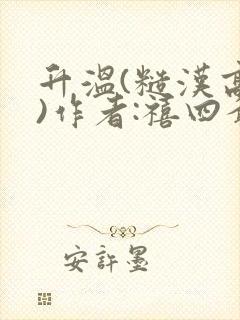 升温(糙漢高
)作者:禧四
安許墨